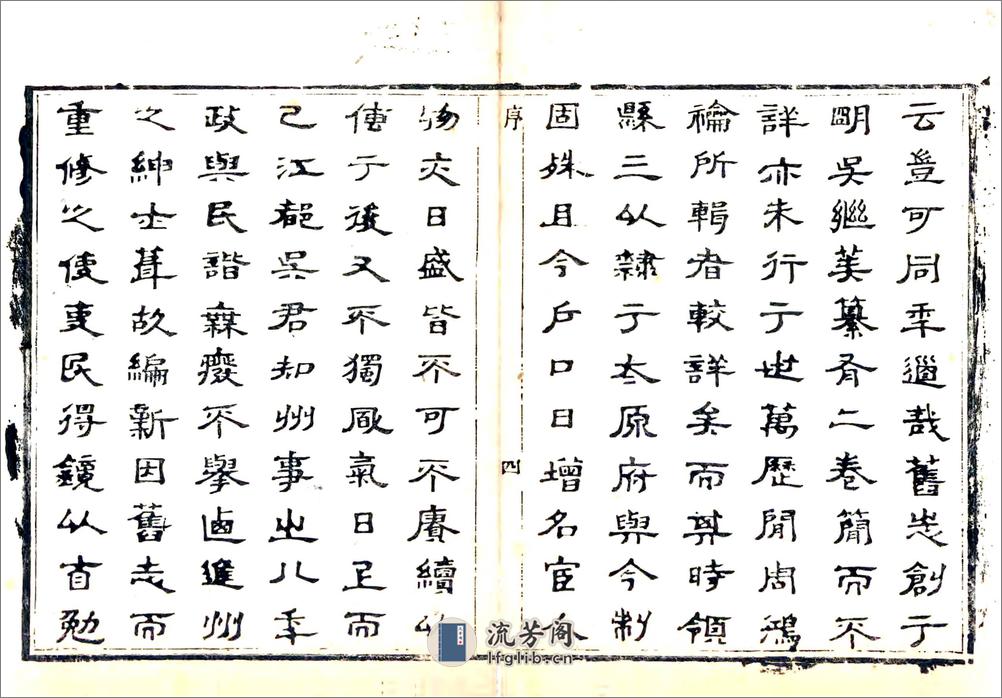 云豈可同秊道哉舊志創于
明吳繼纂有二卷簡而不
詳亦未行于世萬歷閒周鴻
禴所輯者較詳矣而其時領
縣三以隸于太原府與今制
固殊且今戶口日增名宦人
序
四
物文日盛皆不可不賡續以
傳于後又不獨風氣日正而
已江都吳君知州事㞢八秊
政與民諧無廢不舉迺進州
之紳士葺故編新因舊志而
重修之使吏民得鏡以自勉
流芳阁
lfglib.cn